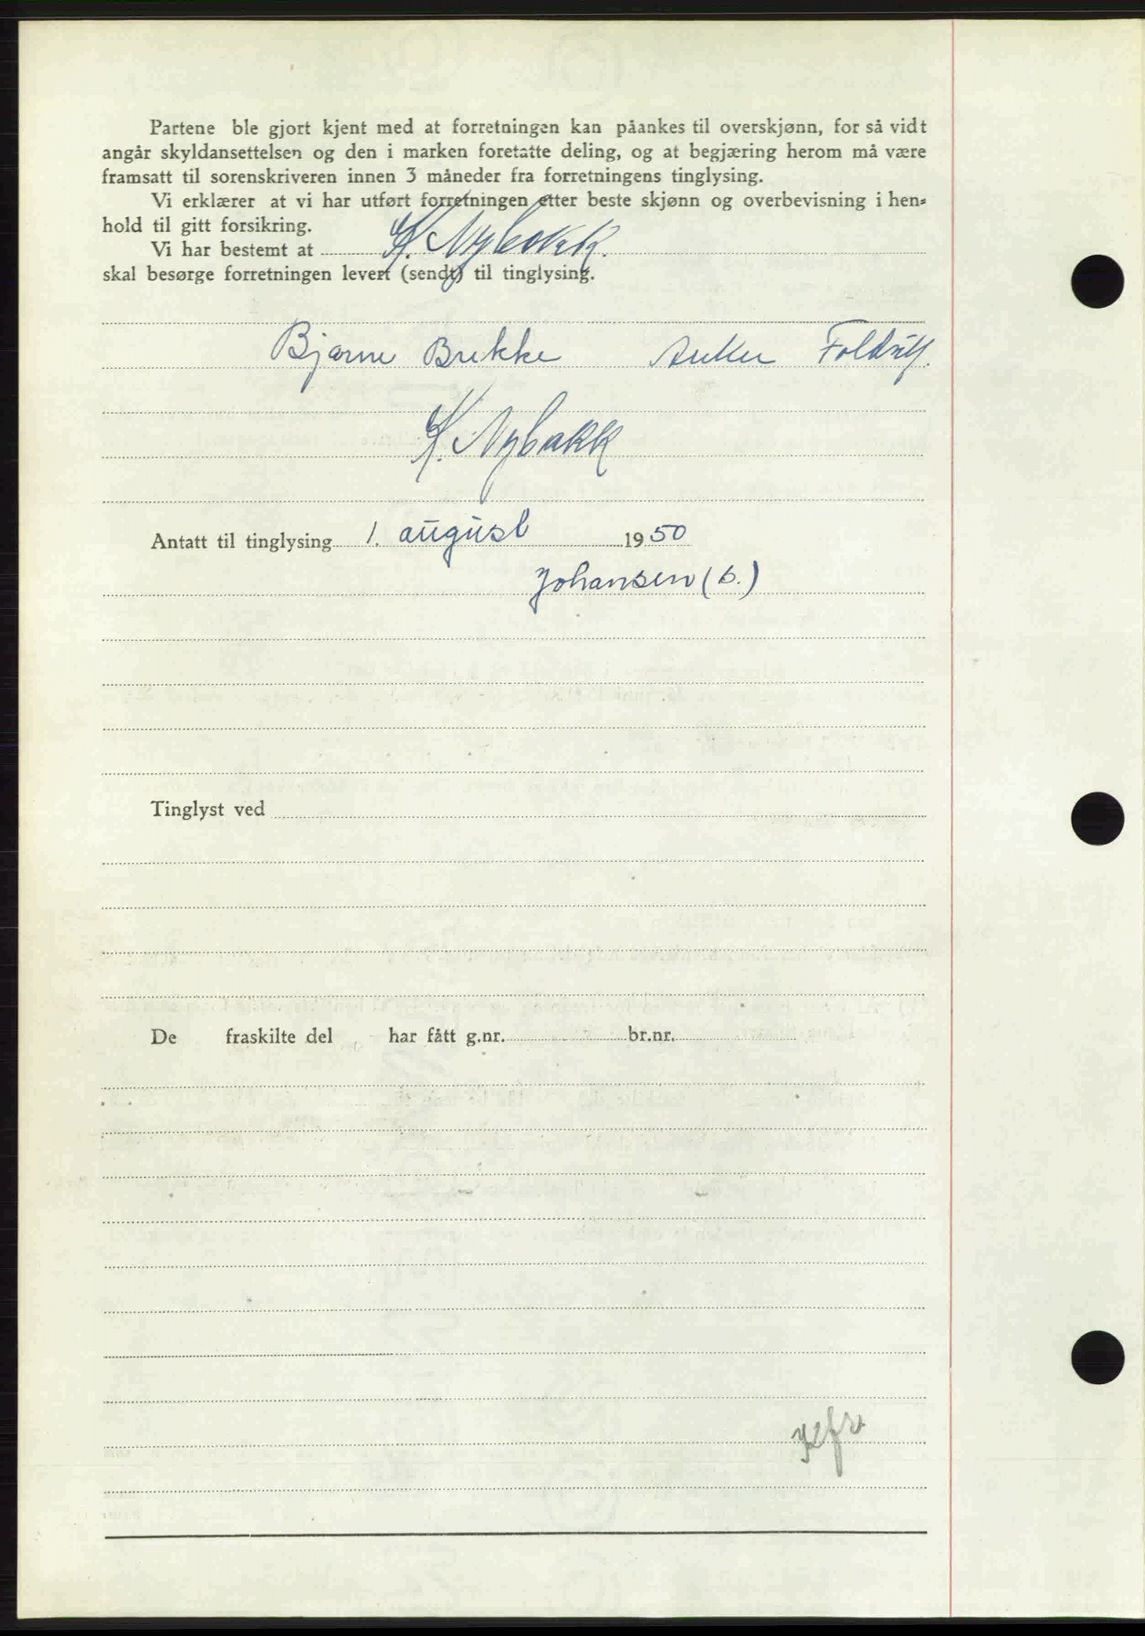 Partene ble gjort kjent med at forretningen kan påankes til overskjønn, for så vidt
angår skyldansettelsen og den i marken foretatte deling, og at begjæring herom må være
framsatt til sorenskriveren innen 3 måneder fra forretningens tinglysing.
Vi erklærer at vi har utført forretningen etter beste skjønn og overbevisning i hen-
hold til gitt forsikring.
Vi har bestemt at K. Nybakk.
skal besørge forretningen levert (sendt) til tinglysing.
Bjarne Brekke Anker
K. Nybakk
Antatt til tinglysing 1. august 1950
Johansen (s.)
Tinglyst ved
De fraskilte del har fått g.nr. br.nr.